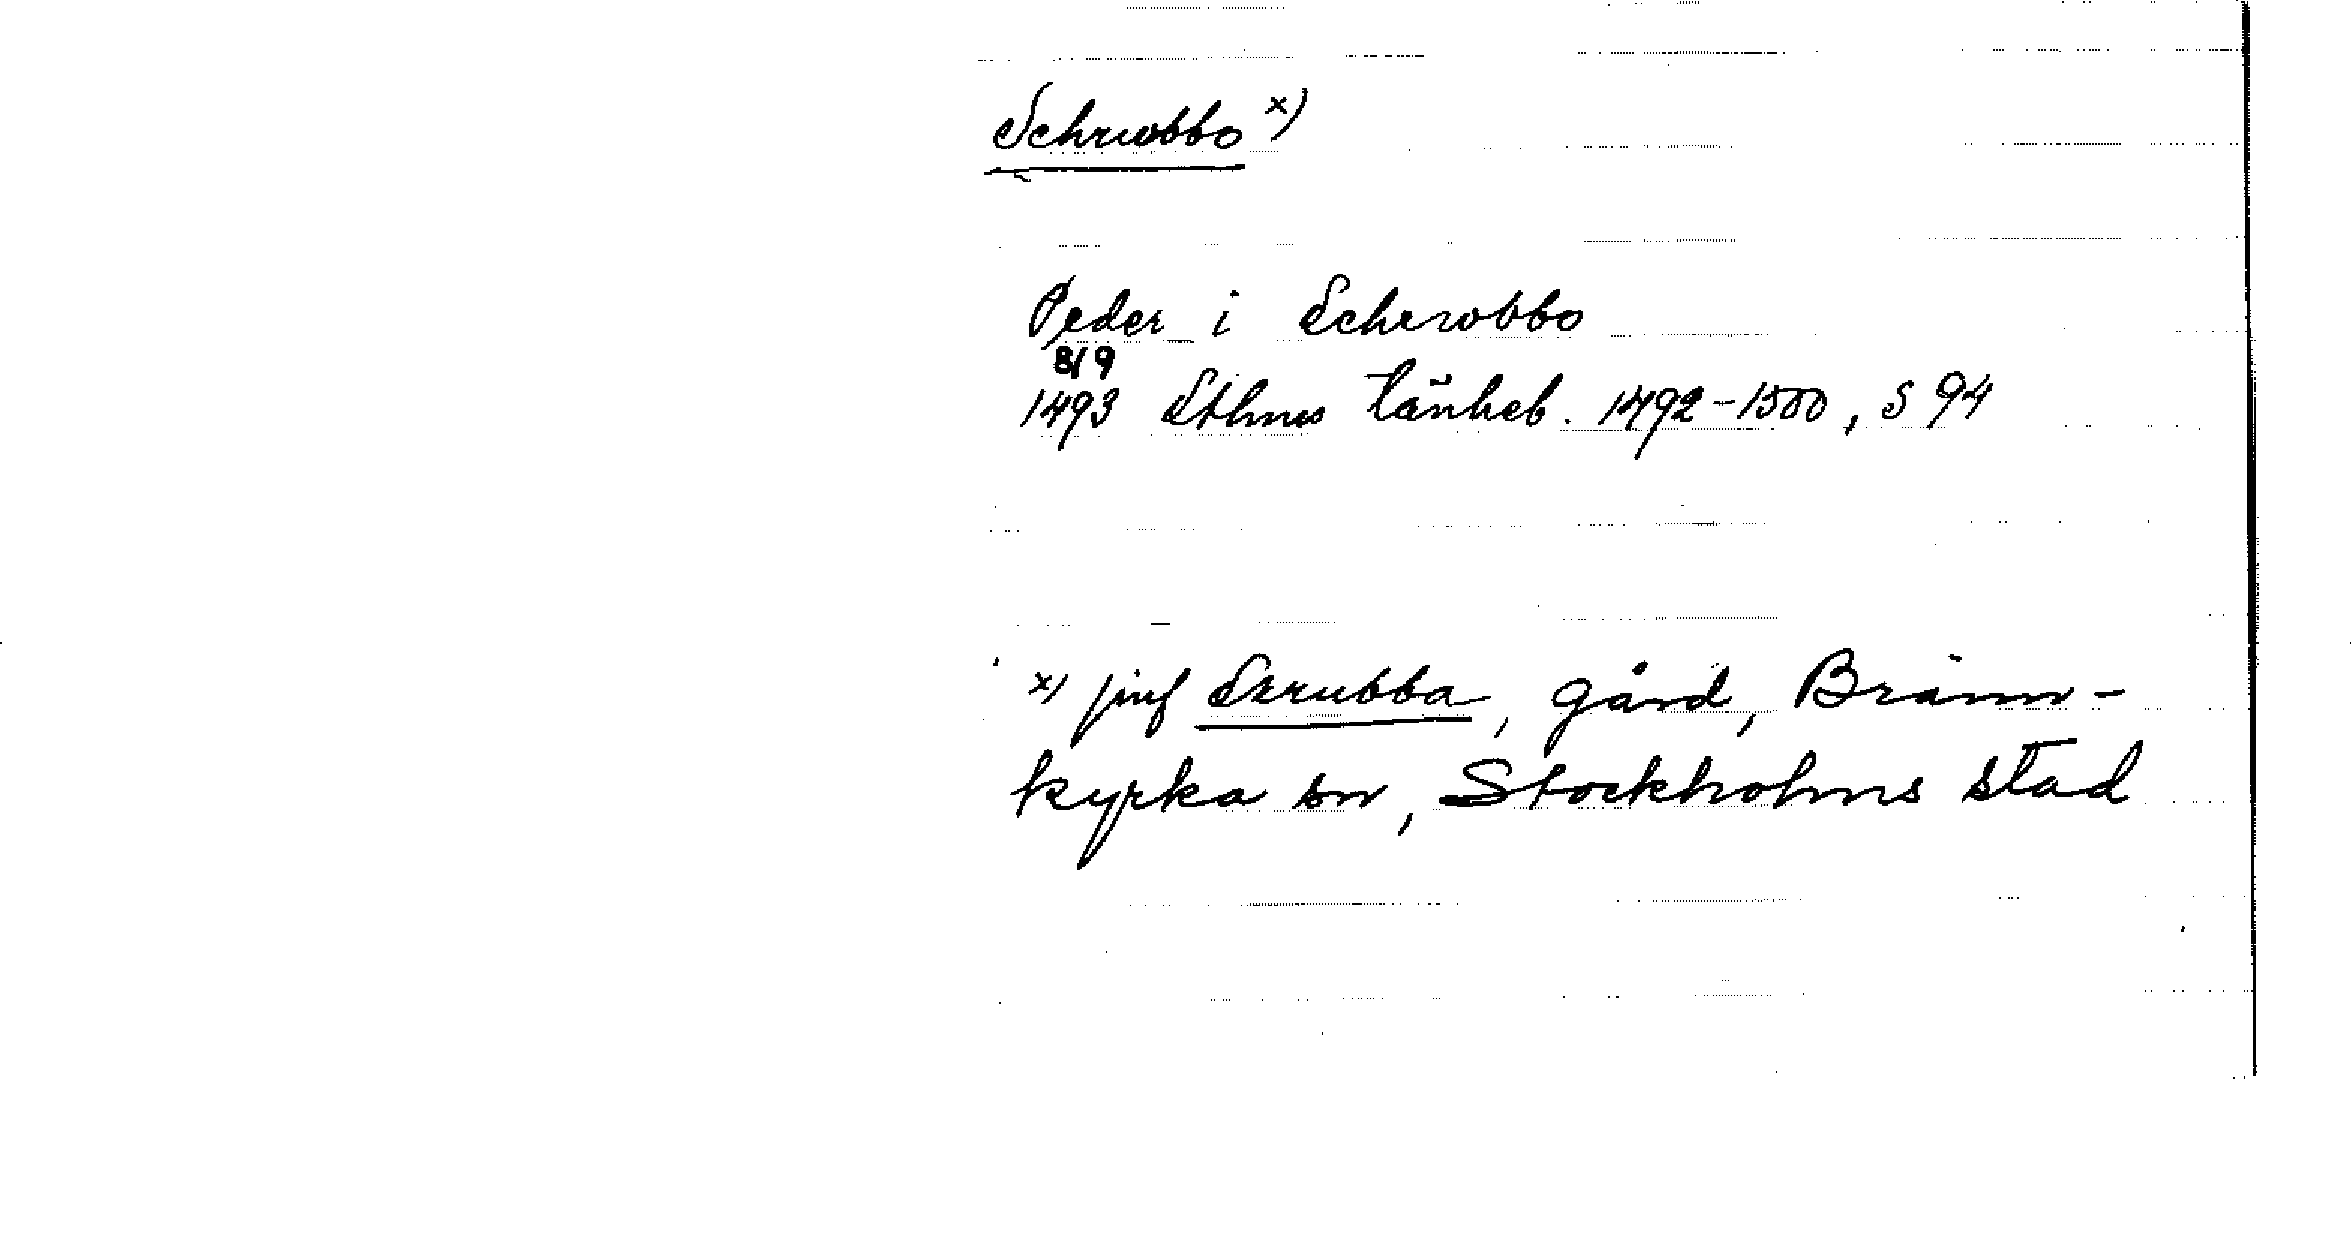 Schrwobbo x)
Peder i Schrwobbo
8/9
1493 Sthms tänkeb. 1492-1500, s 94
x) jmf Skrubba, gård, Bränn-
kyrka sn, Stockholms stad